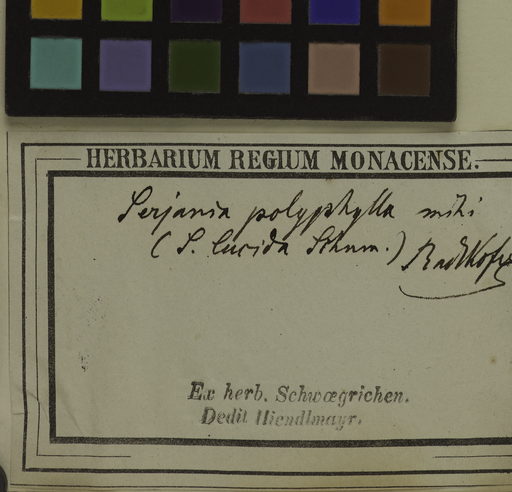 HERBARIUM REGIUM MONACENSE.
Serjania polyphylla mihi
(S. lucida Schum.) Radlkofer
Ex herb. Schwœgrichen.
Dedit Hiendlmayr.